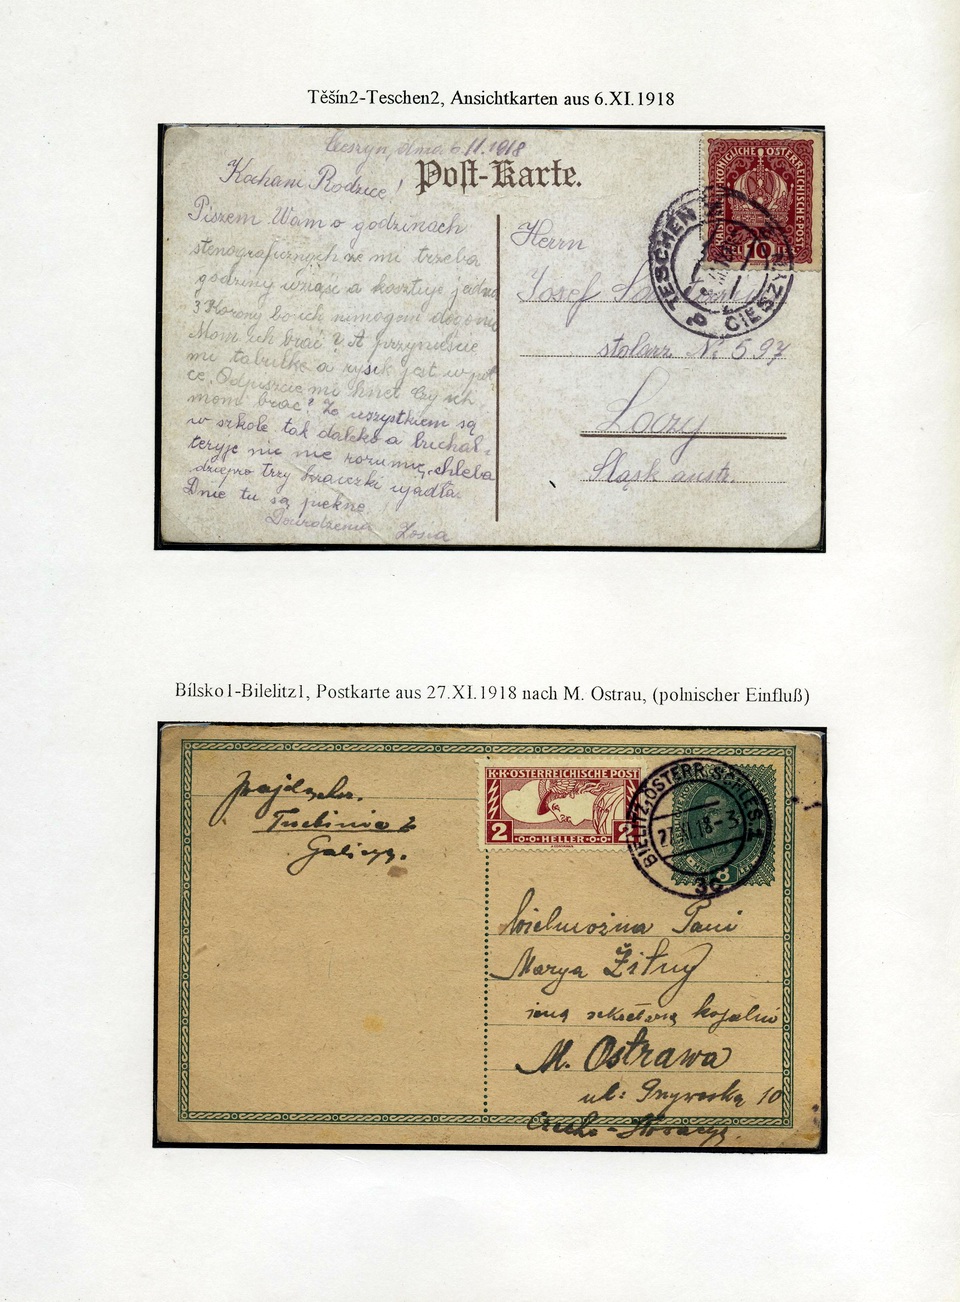 Těšín2-Teschen2, Ansichtkarten aus 6.XI.1918
Cieszyn, dnia 6 11.1918
Post-Karte.
Kochani Rodzice!
Piszem Wam o godzinach
stenograficznych że mi trzeba
godziny wziąść a kosztuje jedna
3 Korony bo ich nimogem dogonić
Mom ich brać? A przynieście
mi tabulke a rysik jest w pol
ce. Odpiszcie mi hnet czy ich
mom brać? Ze wszystkiem są
w szkole tak daleko a buchal-
teryje nic nie rozumię, chleba
dziepro trzy kraiczki ujadła.
Dnie tu są piekne
Pozdrowienia Zosia
KAISERLICHE KÖNIGLICHE ÖSTERREICHISCHE POST
HELLER 10 HELLER
TESCHEN 2 CIESZYN 2
Herrn
Josef
stolarz № 597
Łazy
Śląsk austr.
Bílsko1-Bilelitz1, Postkarte aus 27.XI.1918 nach M. Ostrau, (polnischer Einfluß)
Trzebinia
Galicya.
K·K·ÖSTERREICHISCHE POST
2 HELLER 2
BIELITZ, ÖSTERR. SCHLES. 1
27.XI.18-3
3c
8
Wielmożna Pani
Marya Žitny
żona sekretarza
M. Ostrawa
ul: 10
Czecho-Słowacya.